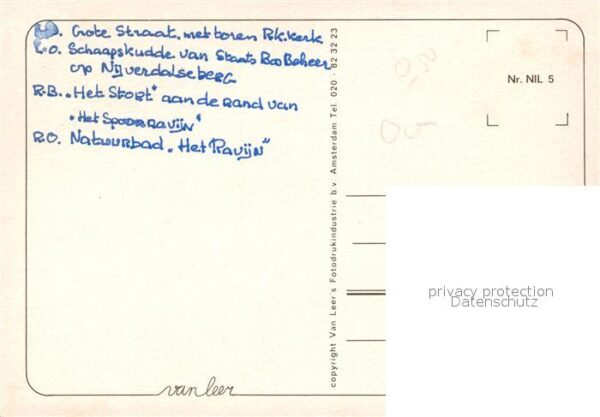 Grote Straat, met toren R.k. kerk
L.O. Schaapskudde van Staats BosBeheer
op Nijverdalseberg
R.B. "Het Stort" aan de rand van
"Het Spoorravijn"
R.O. Natuurbad "Het Ravijn"
Nr. NIL 5
copyright Van Leer's Fotodrukindustrie b.v. Amsterdam Tel. 020 - 82 32 23
privacy protection
Datenschutz
van leer